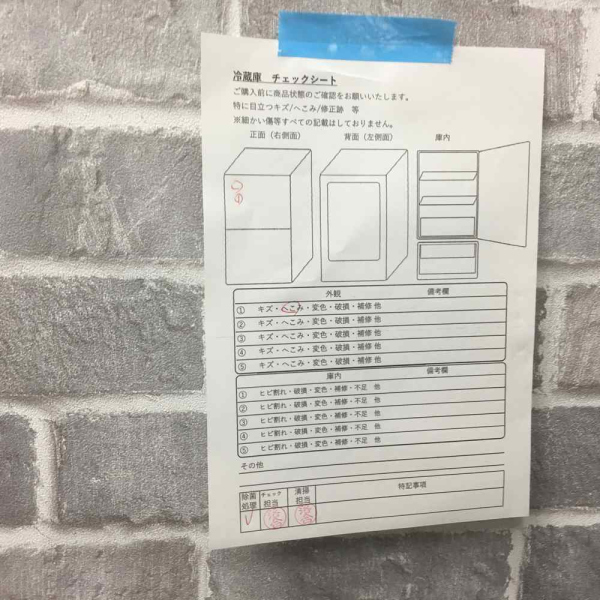 冷蔵庫 チェックシート
ご購入前に商品状態のご確認をお願いいたします。
特に目立つキズ/へこみ/修正跡 等
※細かい傷等すべての記載はしておりません。
正面（右側面） 背面（左側面） 庫内
①
外観 備考欄
① キズ・へこみ・変色・破損・補修 他
② キズ・へこみ・変色・破損・補修 他
③ キズ・へこみ・変色・破損・補修 他
④ キズ・へこみ・変色・破損・補修 他
⑤ キズ・へこみ・変色・破損・補修 他
庫内 備考欄
① ヒビ割れ・破損・変色・補修・不足 他
② ヒビ割れ・破損・変色・補修・不足 他
③ ヒビ割れ・破損・変色・補修・不足 他
④ ヒビ割れ・破損・変色・補修・不足 他
⑤ ヒビ割れ・破損・変色・補修・不足 他
その他
除菌処理 チェック担当 清掃担当 特記事項